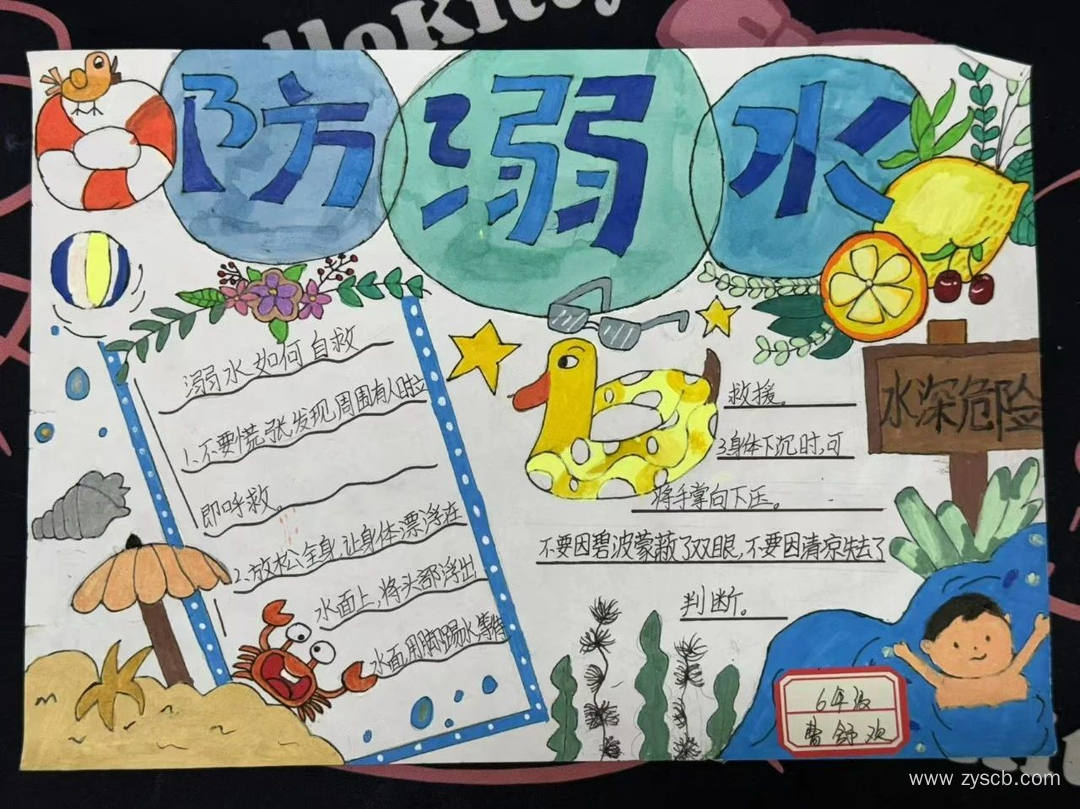 防溺水
溺水如何自救
1、不要慌张,发现周围有人时立
即呼救。
2、放松全身,让身体漂浮在
水面上,将头部浮出
水面,用脚踢水等待
救援。
3身体下沉时,可
将手掌向下压。
不要因碧波蒙蔽了双眼,不要因清凉失去了
判断。
水深危险
6年级
www.zyscb.com